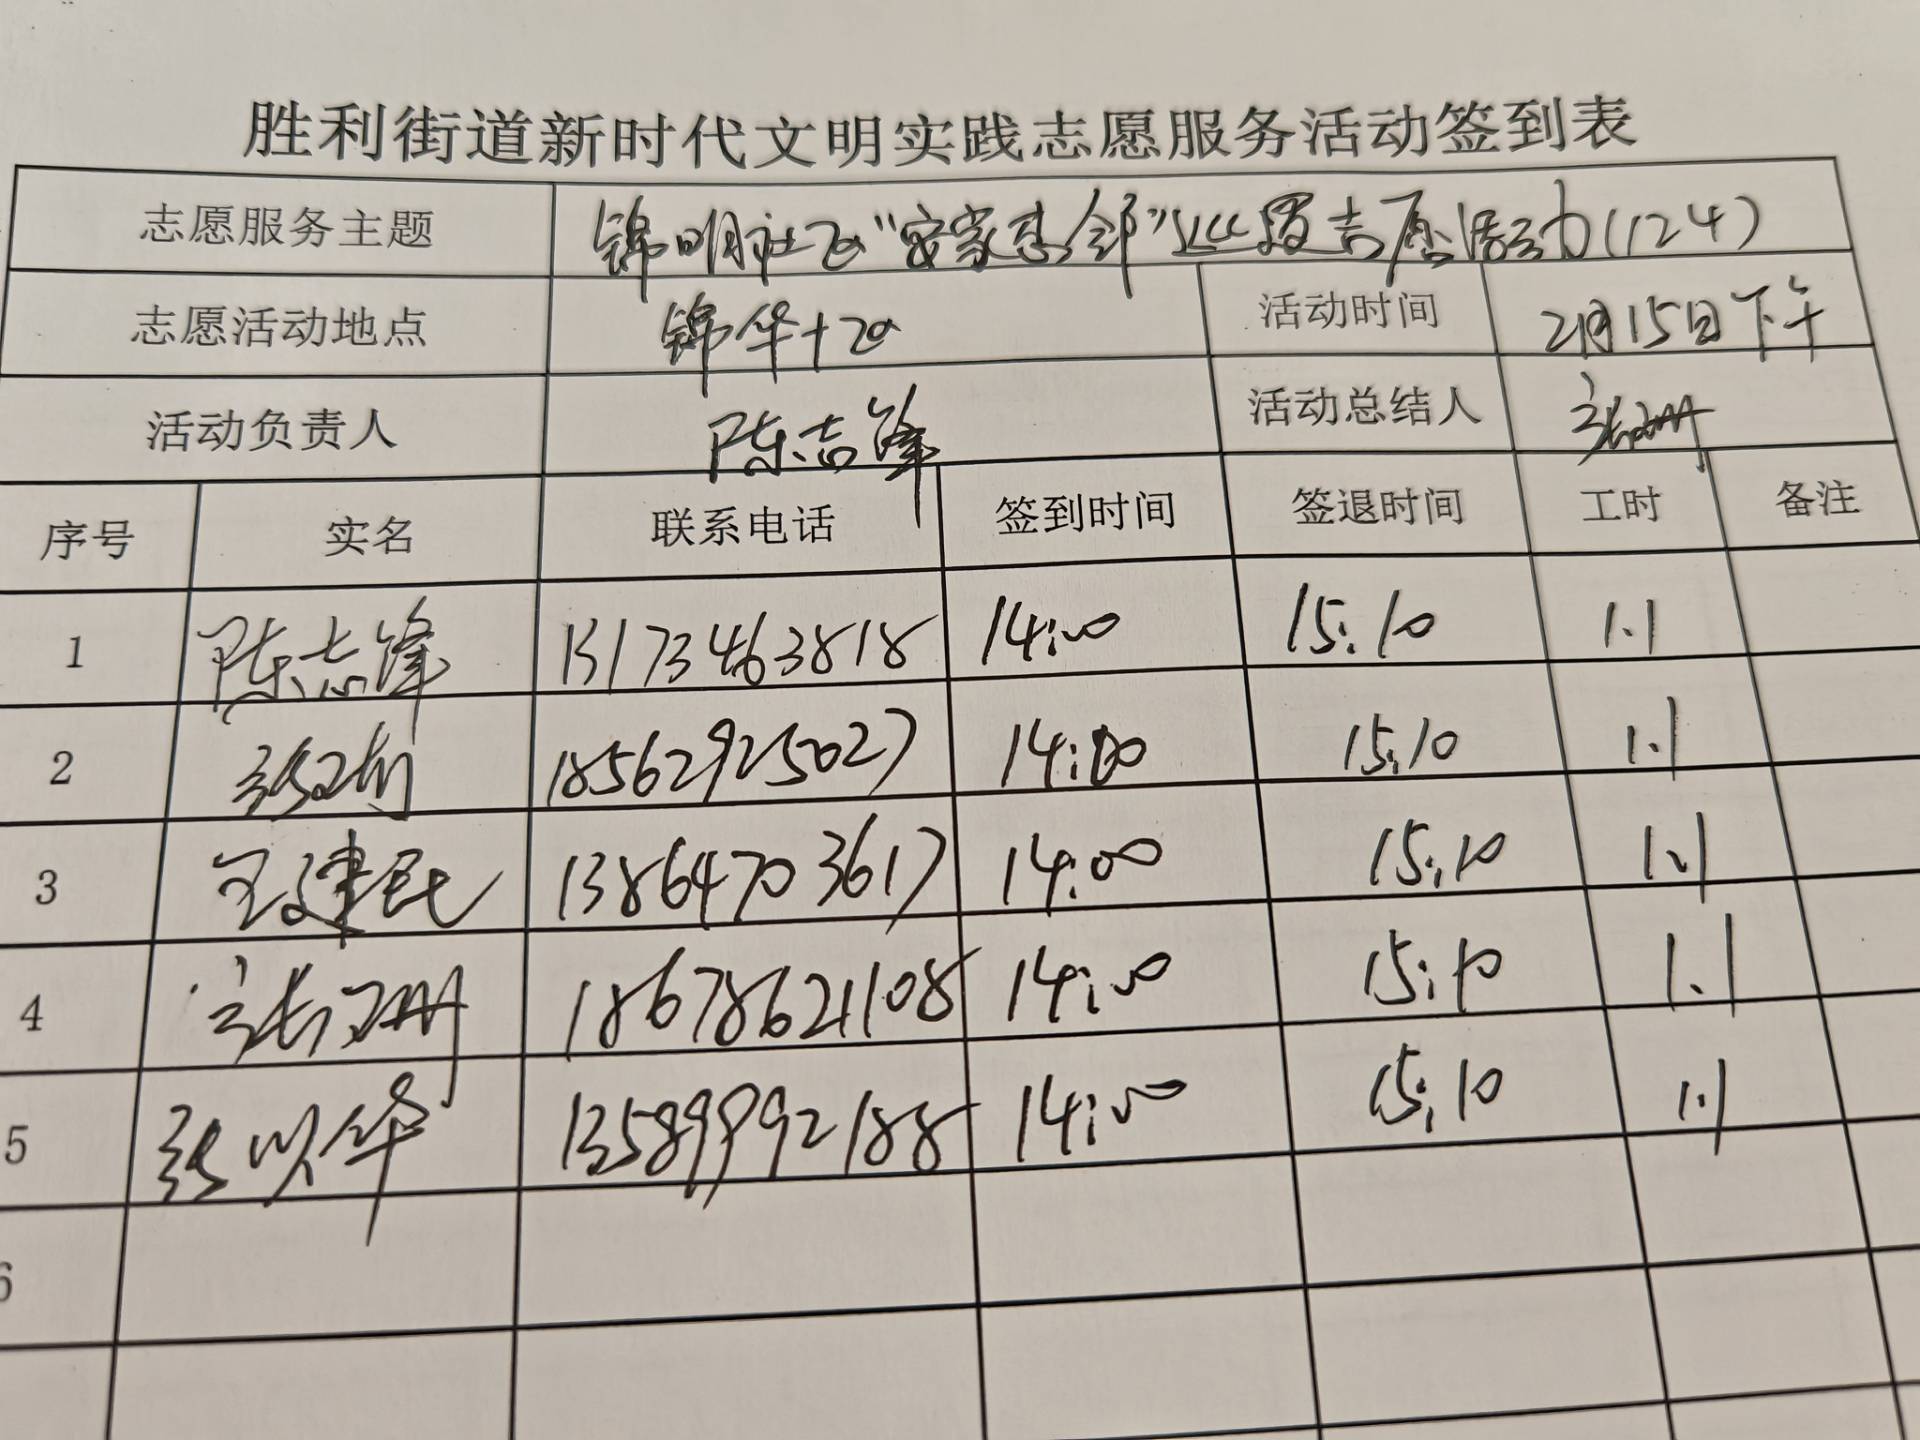 胜利街道新时代文明实践志愿服务活动签到表
志愿服务主题 锦明社区“安家志邻”巡逻志愿活动(124)
志愿活动地点 锦华十区 活动时间 2月15日下午
活动负责人 陈志锋 活动总结人 张珊
序号 实名 联系电话 签到时间 签退时间 工时 备注
1 陈志锋 13173463818 14:00 15:10 1.1
2 18562925027 14:00 15:10 1.1
3 王建民 13864703617 14:00 15:10 1.1
4 张珊 18678621108 14:00 15:10 1.1
5 张以华 13589992188 14:00 15:10 1.1
6